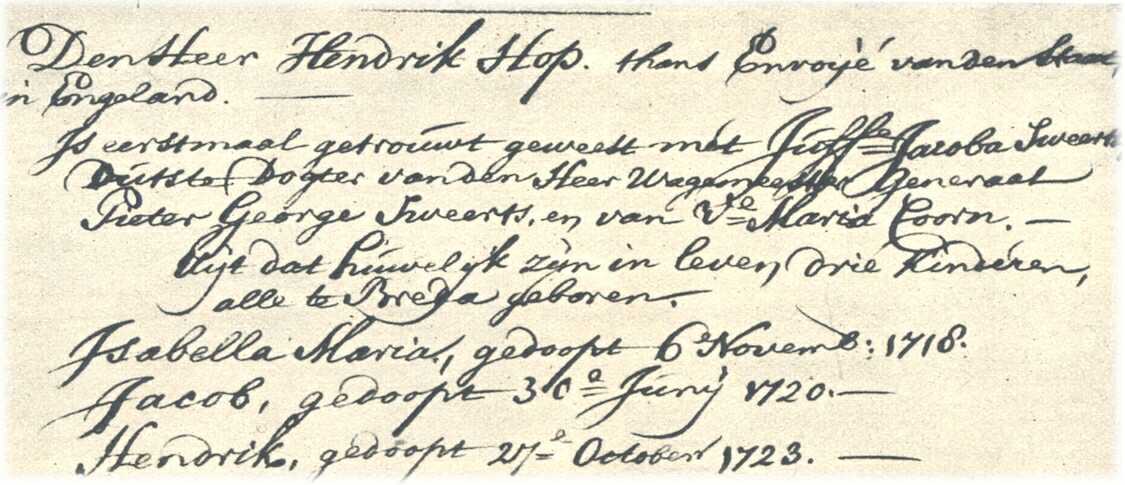 Den Heer Hendrik Hop. thans Envoÿé van den Staat,
in Engeland. —
Is eerstmaal getrouwt geweest met Juffe Jacoba Sweerts
Dogter van den Heer Wagemeester Generaal
Pieter George Sweerts, en van Ve Maria Coorn. —
Uijt dat huwelijk zijn in leven drie Kinderen,
alle te Breda geboren. —
Isabella Maria, gedoopt 6e Novemb: 1718.
Jacob, gedoopt 30e Junij 1720. —
Hendrik, gedoopt 27e October 1723. —